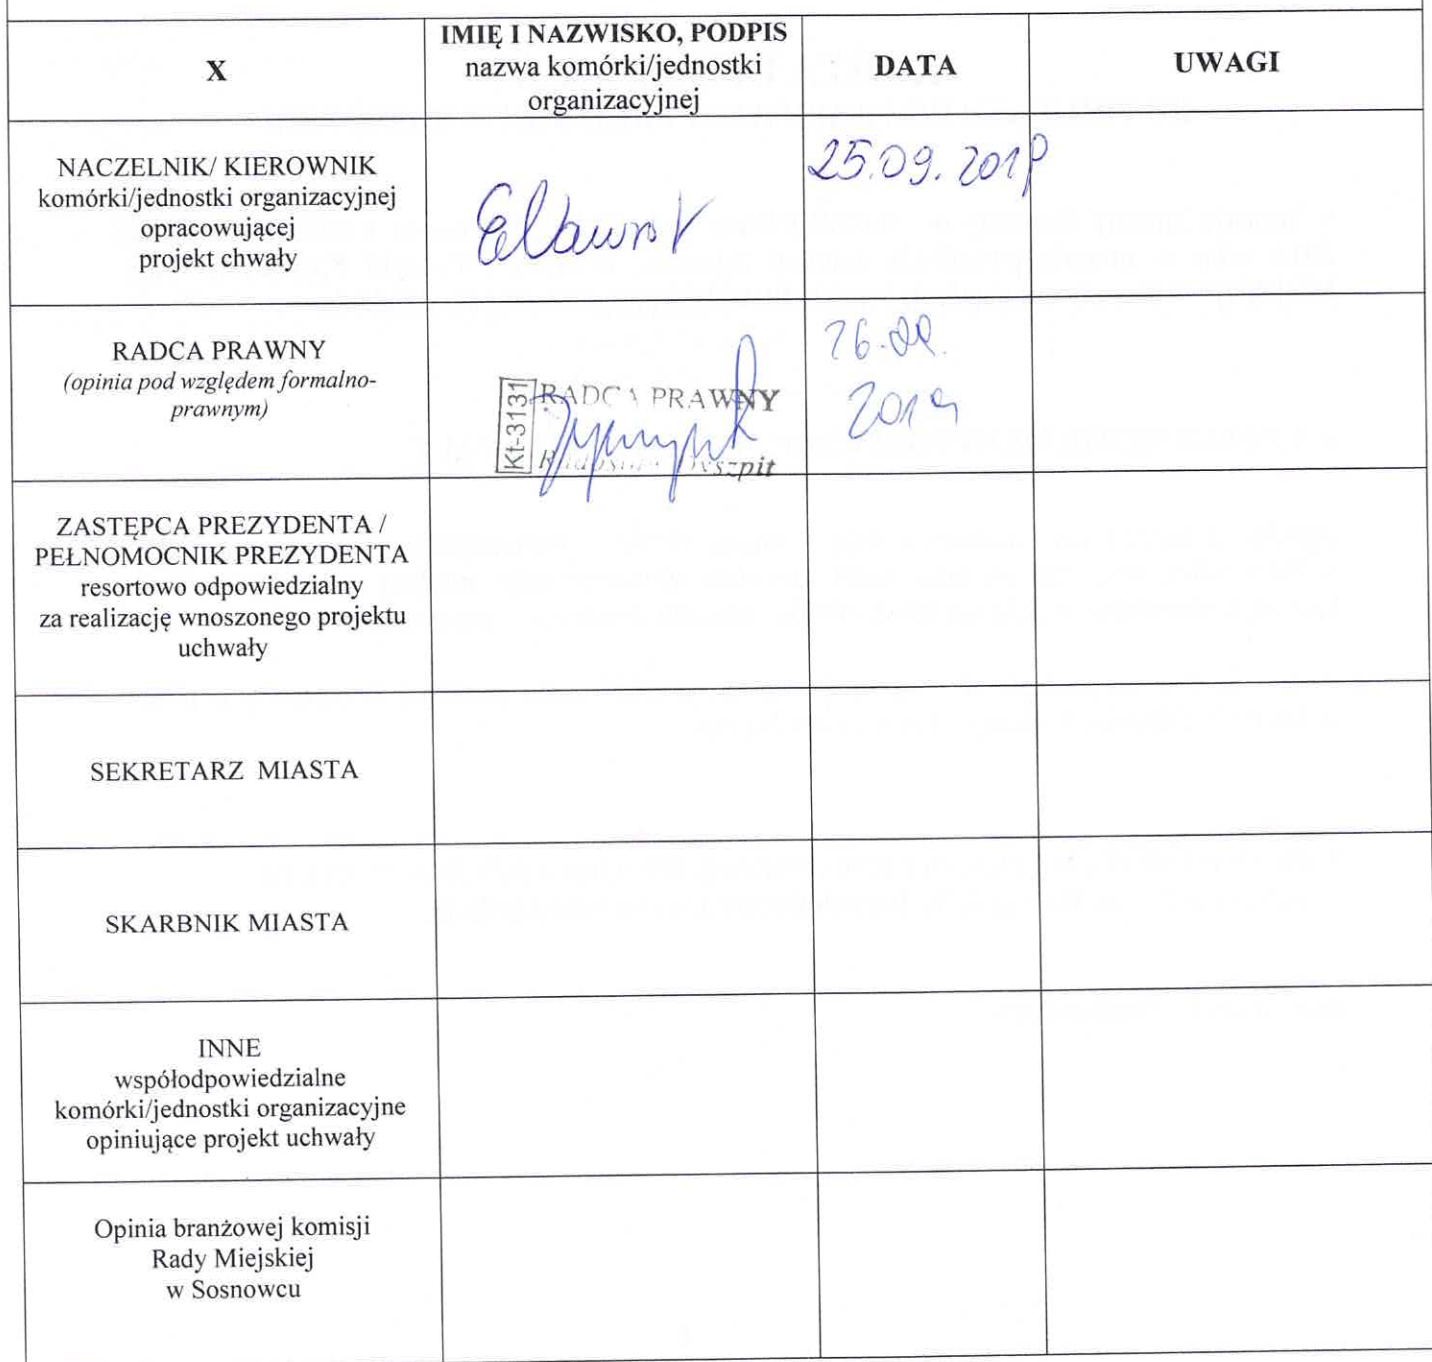 X
IMIĘ I NAZWISKO, PODPIS
nazwa komórki/jednostki
organizacyjnej
DATA
UWAGI
NACZELNIK/ KIEROWNIK
komórki/jednostki organizacyjnej
opracowującej
projekt chwały
25.09.2019
RADCA PRAWNY
(opinia pod względem formalno-
prawnym)
Kt-3131
RADCA PRAWNY
26.09.
2019
ZASTĘPCA PREZYDENTA /
PEŁNOMOCNIK PREZYDENTA
resortowo odpowiedzialny
za realizację wnoszonego projektu
uchwały
SEKRETARZ MIASTA
SKARBNIK MIASTA
INNE
współodpowiedzialne
komórki/jednostki organizacyjne
opiniujące projekt uchwały
Opinia branżowej komisji
Rady Miejskiej
w Sosnowcu